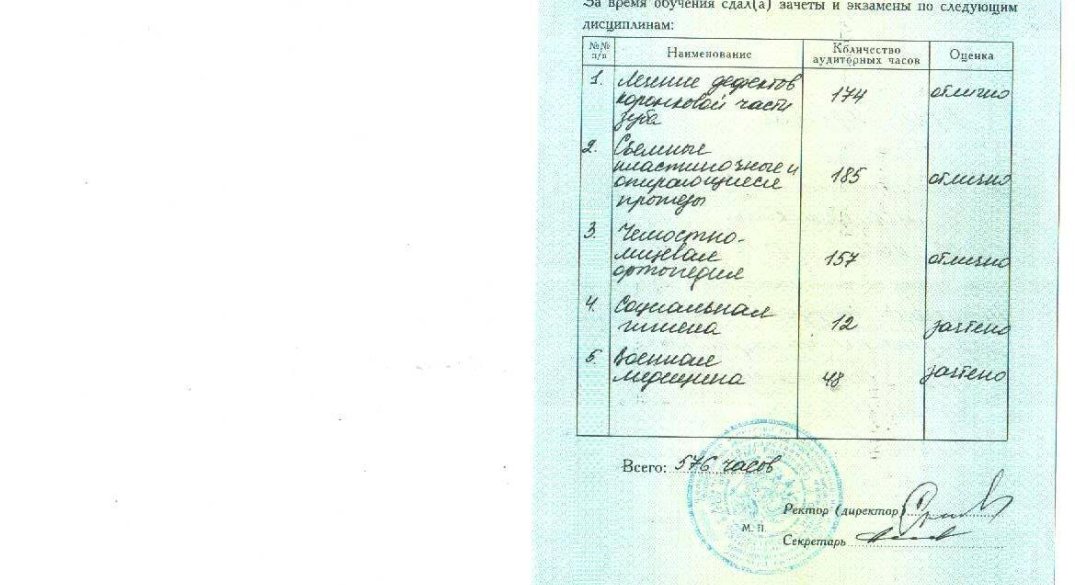 За время обучения сдал(а) зачеты и экзамены по следующим
дисциплинам:
№№ п/п Наименование Количество аудиторных часов Оценка
1. Лечение дефектов 174 отлично
коронковой части
зуба
2. Съемные
пластиночные и 185 отлично
опирающиеся
протезы
3. Челюстно-
лицевая 157 отлично
ортопедия
4. Социальная
гигиена 12 зачтено
5. Военная
медицина 48 зачтено
Всего: 576 часов
Ректор (директор)
М. П.
Секретарь